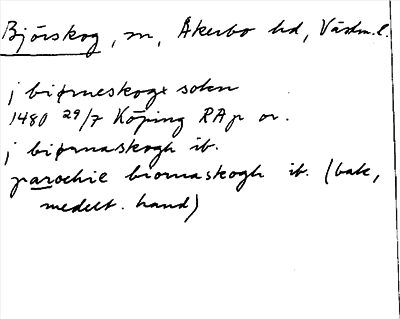 Björskog, sn, Åkerbo hd, Västm.l.
j biørneskogx sokn
1480 29/7 Köping RAp or.
j biørnaskogh ib.
parochie biornaskogh ib. (bak,
medelt. hand)